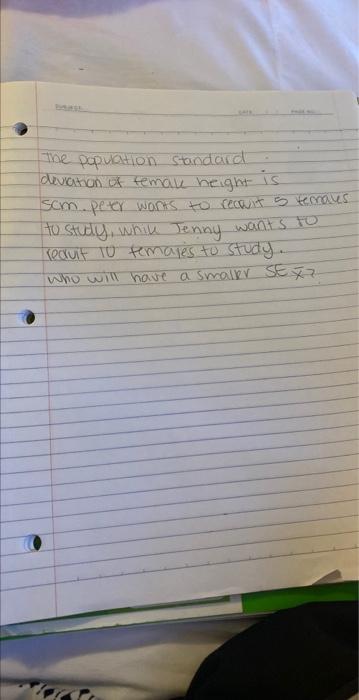 SUBJECT:
DATE / / PAGE NO:
The population standard
deviation of female height is
5cm. peter wants to recruit 5 females
to study, while Jenny wants to
recruit 10 females to study.
who will have a smaller SE x̄?